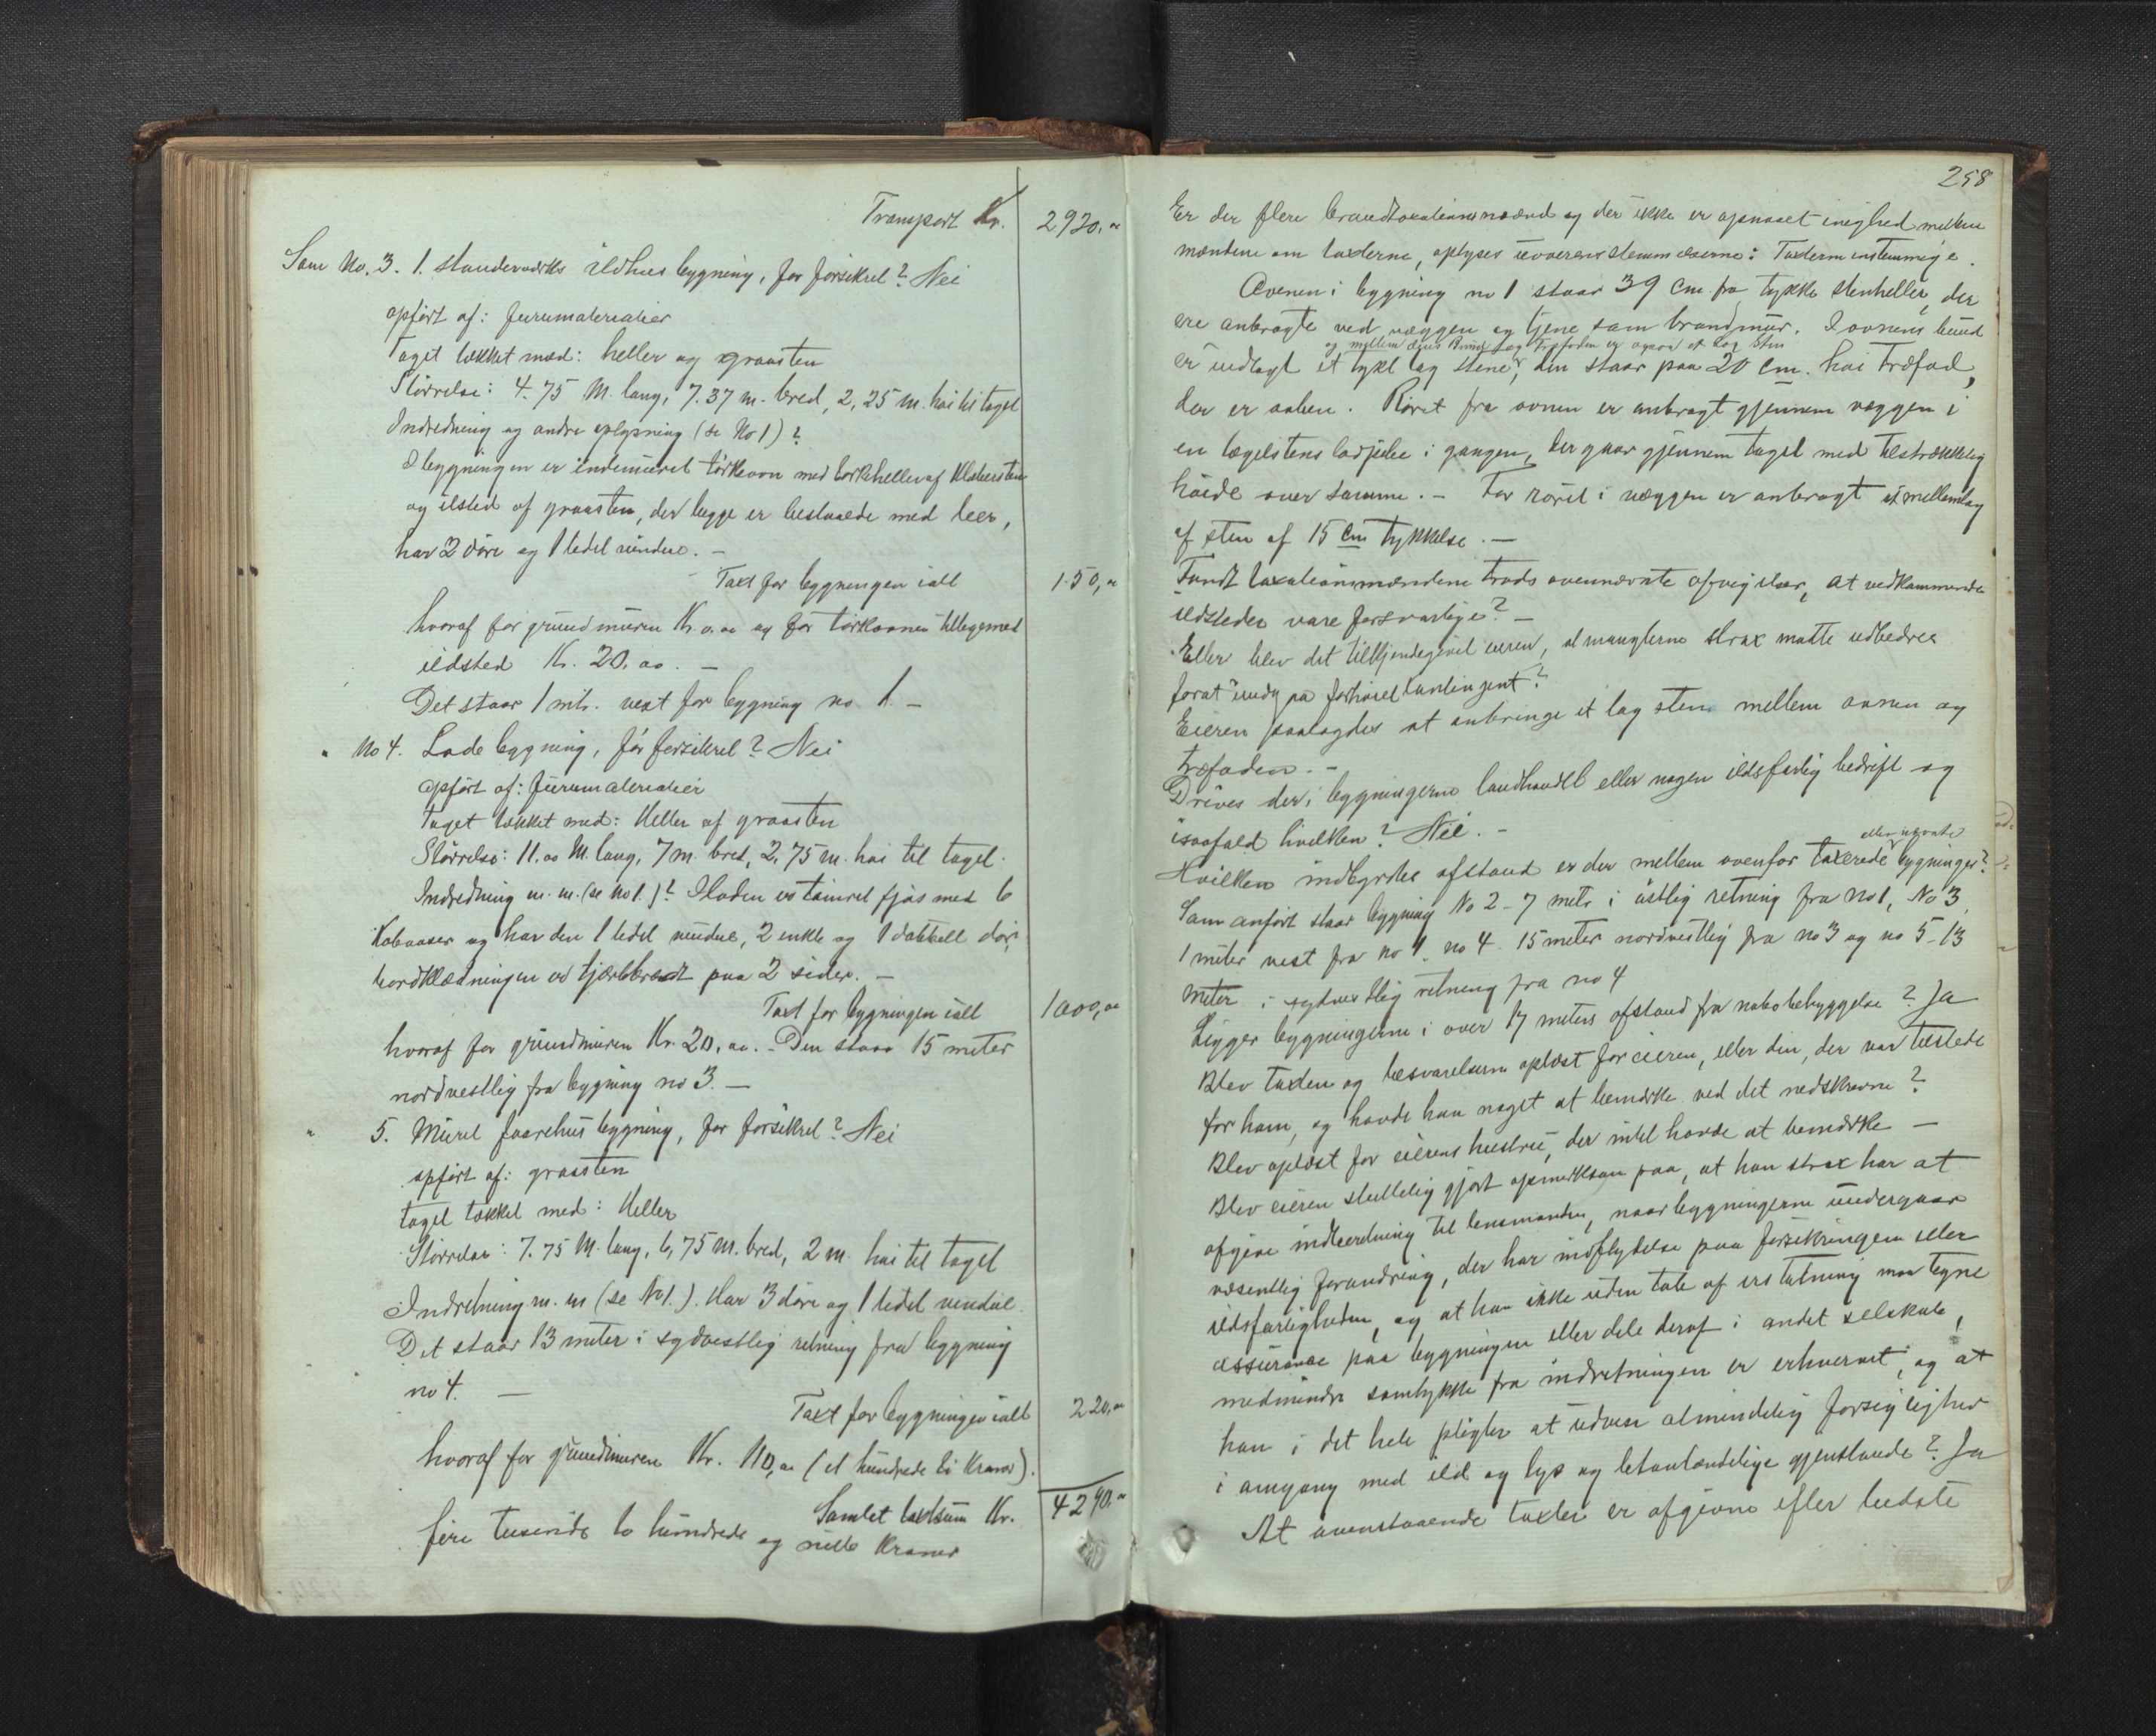 Transport Kr. 2920,"
Som No. 3. 1. standerværks ildhus bygning, før forsikret? Nei
opført af: furumaterialier
Taget tækket med: heller og graasten
Størrelse: 4.75 M. lang, 7.37 m. bred, 2,25 m. høi til taget
Indredning og andre oplysning (se No 1)?
I bygningen er indmuret tørkeovn med tørkeheller af klæbersten
og ilsted af graasten, der begge er bestaaede med leer,
har 2 døre og 1 lidet vindue. –
Taxt for bygningen ialt 150,"
hvoraf for grundmuren Kr. 0.00 og for tørkovnen tilligemed
ildsted Kr. 20,00. –
Det staar 1 mtr. vest for bygning no 1. –
" No 4. Lade bygning, før forsikret? Nei
opført af: furumaterialier
taget tækket med: Heller af graasten
Størrelse: 11.00 M. lang, 7 m. bred, 2,75 m. høi til taget.
Indredning m. m. (se no 1.)? I laden er tømret fjøs med 6
Kobaaser og har den 1 lidet vindue, 2 enkle og 1 dobbelt dør,
bordklædningen er tjærebredt paa 2 sider. –
Taxt for bygningen ialt 1000,00
hvoraf for grundmuren Kr. 20,00. – Den staar 15 meter
nordvestlig fra bygning no 3. –
" 5. Muret faarehus bygning, før forsikret? Nei
opført af: graasten
taget tækket med: Heller
Størrelse: 7.75 M. lang, 6,75 M. bred, 2 m. høi til taget
Indretning m. m (se No 1.). Har 3 døre og 1 lidet vindue.
Det staar 13 meter i sydvestlig retning fra bygning
no 4. –
Taxt for bygningen ialt 220,00
hvoraf for grundmuren Kr. 110,00 (et hundrede ti Kroner).
Samlet taxtsum Kr. 4290,"
fire tusinde to hundrede og nitti Kroner
258
Er der flere brandtaxationsmænd og der ikke er opnaaet enighed mellem
mændene om taxterne, oplyses uoverensstemmelserne: Taxterne enstemmige.
Ovenen i bygning no 1 staar 39 cm. fra tykke stenheller, der
ere anbragte ved væggen og tjene som brandmur. I ovnens bund
og mellem dens Bund og Træfoden er ogsaa et Lag Sten
er indlagt et tykt lag stene, den staar paa 20 cm. høi Træfod,
der er aaben. Røret fra ovnen er anbragt gjennem væggen i
en tægelstens ladpibe i gangen, der gaar gjennem taget med tilstrækkelig
høide over samme. – For røret i væggen er anbragt et mellemlag
af sten af 15 cm tykkelse. –
Fandt taxationsmændene trods ovennævnte afvigelser, at vedkommende
ildsteder vare forsvarlige? –
Eller blev det tilkjendegivet eieren, at manglerne strax maatte udbedres
forat undgaa forhøiet kontingent?
Eieren paalagdes at anbringe et lag sten mellem ovnen og
træfoden. –
Drives der i bygningerne landhandel eller nogen ildsfarlig bedrift og
isaafald hvilken? Nei. –
Hvilken indbyrdes afstand er der mellem ovenfor taxerede bygninger?
Som anført staar bygning No 2 – 7 metr i østlig retning fra no 1, No 3,
1 meter vest fra no 1. no 4. 15 meter nordvestlig fra no 3 og no 5 – 13
meter i sydvestlig retning fra no 4
Ligger bygningerne i over 17 meters afstand fra nabobebyggelse? Ja
Blev taxten og besvarelserne oplæst for eieren, eller den, der var tilstede
for ham, og havde han noget at bemærke ved det nedskrevne?
Blev oplæst for eierens hustru, der intet havde at bemærke –
Blev eieren skellelig gjort opmerksom paa, at han strax har at
afgive indberetning til lensmanden, naar bygningerne undergaar
væsentlig forandring, der har indflydelse paa forsikringen eller
ildsfarligheden, og at han ikke uden tab af erstatning maa tegne
assurance paa bygningen eller dele deraf i andet selskab,
medmindre samtykke fra indretningen er erhvervet, og at
han i det hele pligter at udvise almindelig forsigtighed
i omgang med ild og lys og letantændelige gjenstande? Ja
At ovenstaaende taxter er afgivne efter bedste